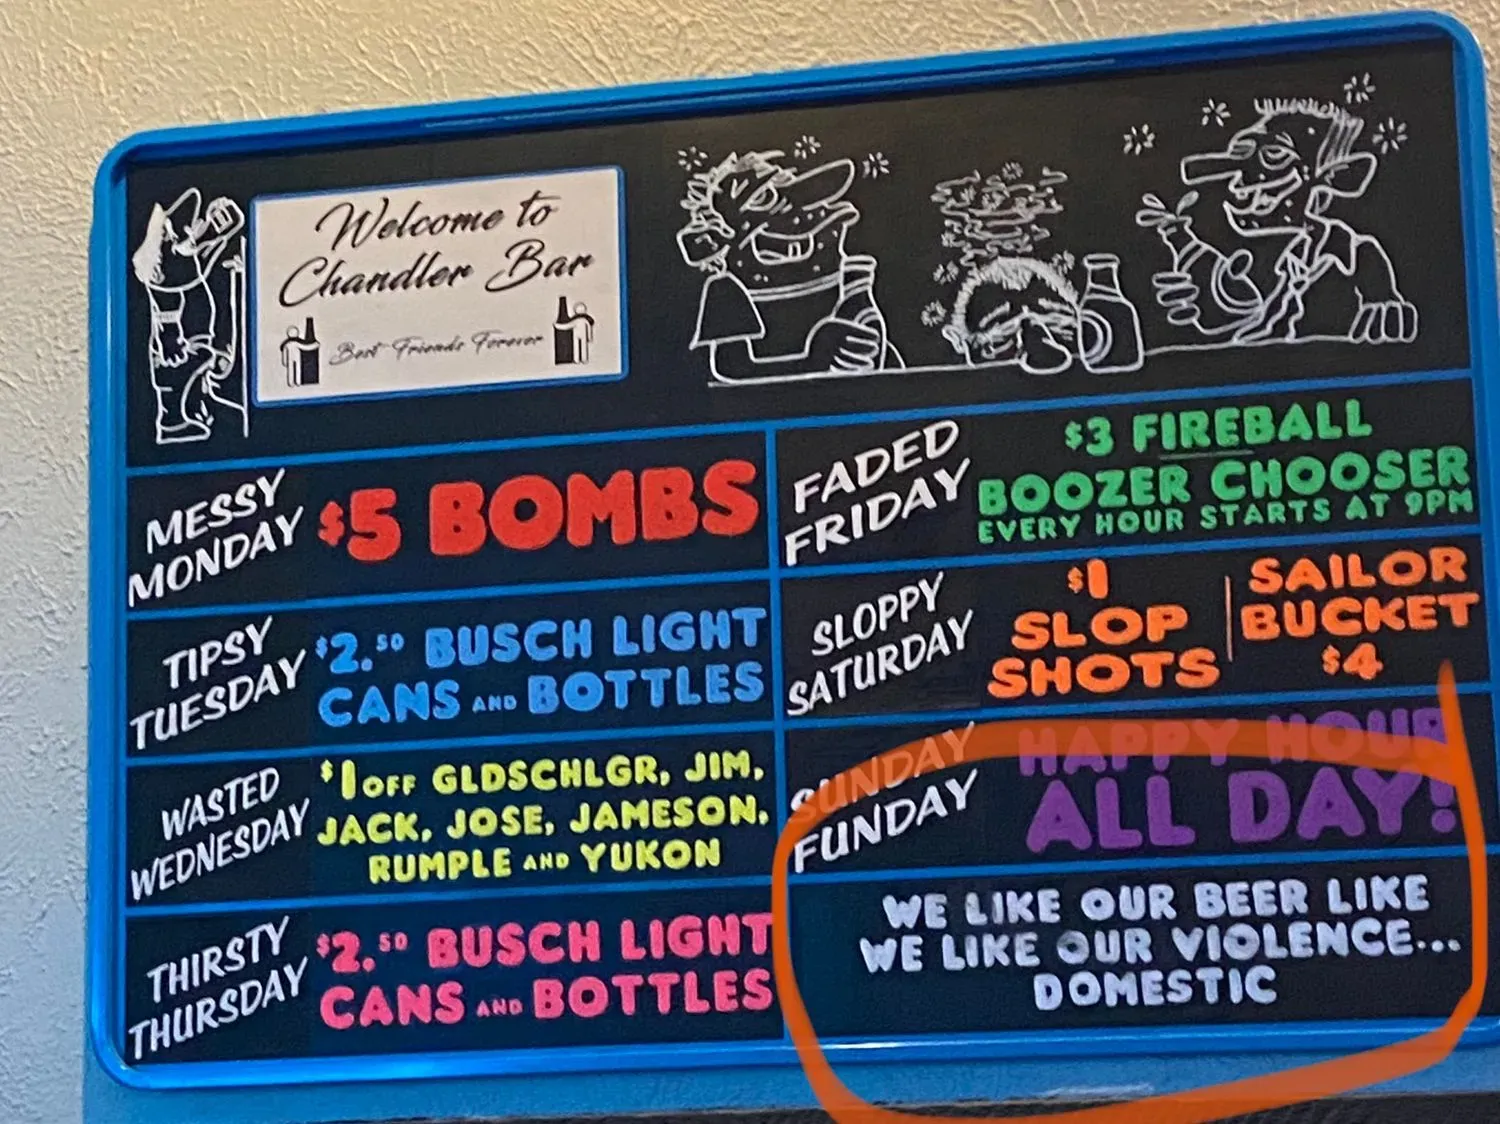 Welcome to
Chandler Bar
Best Friends Forever
MESSY
MONDAY
$5 BOMBS
TIPSY
TUESDAY
$2.50 BUSCH LIGHT
CANS AND BOTTLES
WASTED
WEDNESDAY
$1 OFF GLDSCHLGR, JIM,
JACK, JOSE, JAMESON,
RUMPLE AND YUKON
THIRSTY
THURSDAY
$2.50 BUSCH LIGHT
CANS AND BOTTLES
FADED
FRIDAY
$3 FIREBALL
BOOZER CHOOSER
EVERY HOUR STARTS AT 9PM
SLOPPY
SATURDAY
$1
SLOP
SHOTS
SAILOR
BUCKET
$4
SUNDAY
FUNDAY
HAPPY HOUR
ALL DAY!
WE LIKE OUR BEER LIKE
WE LIKE OUR VIOLENCE...
DOMESTIC